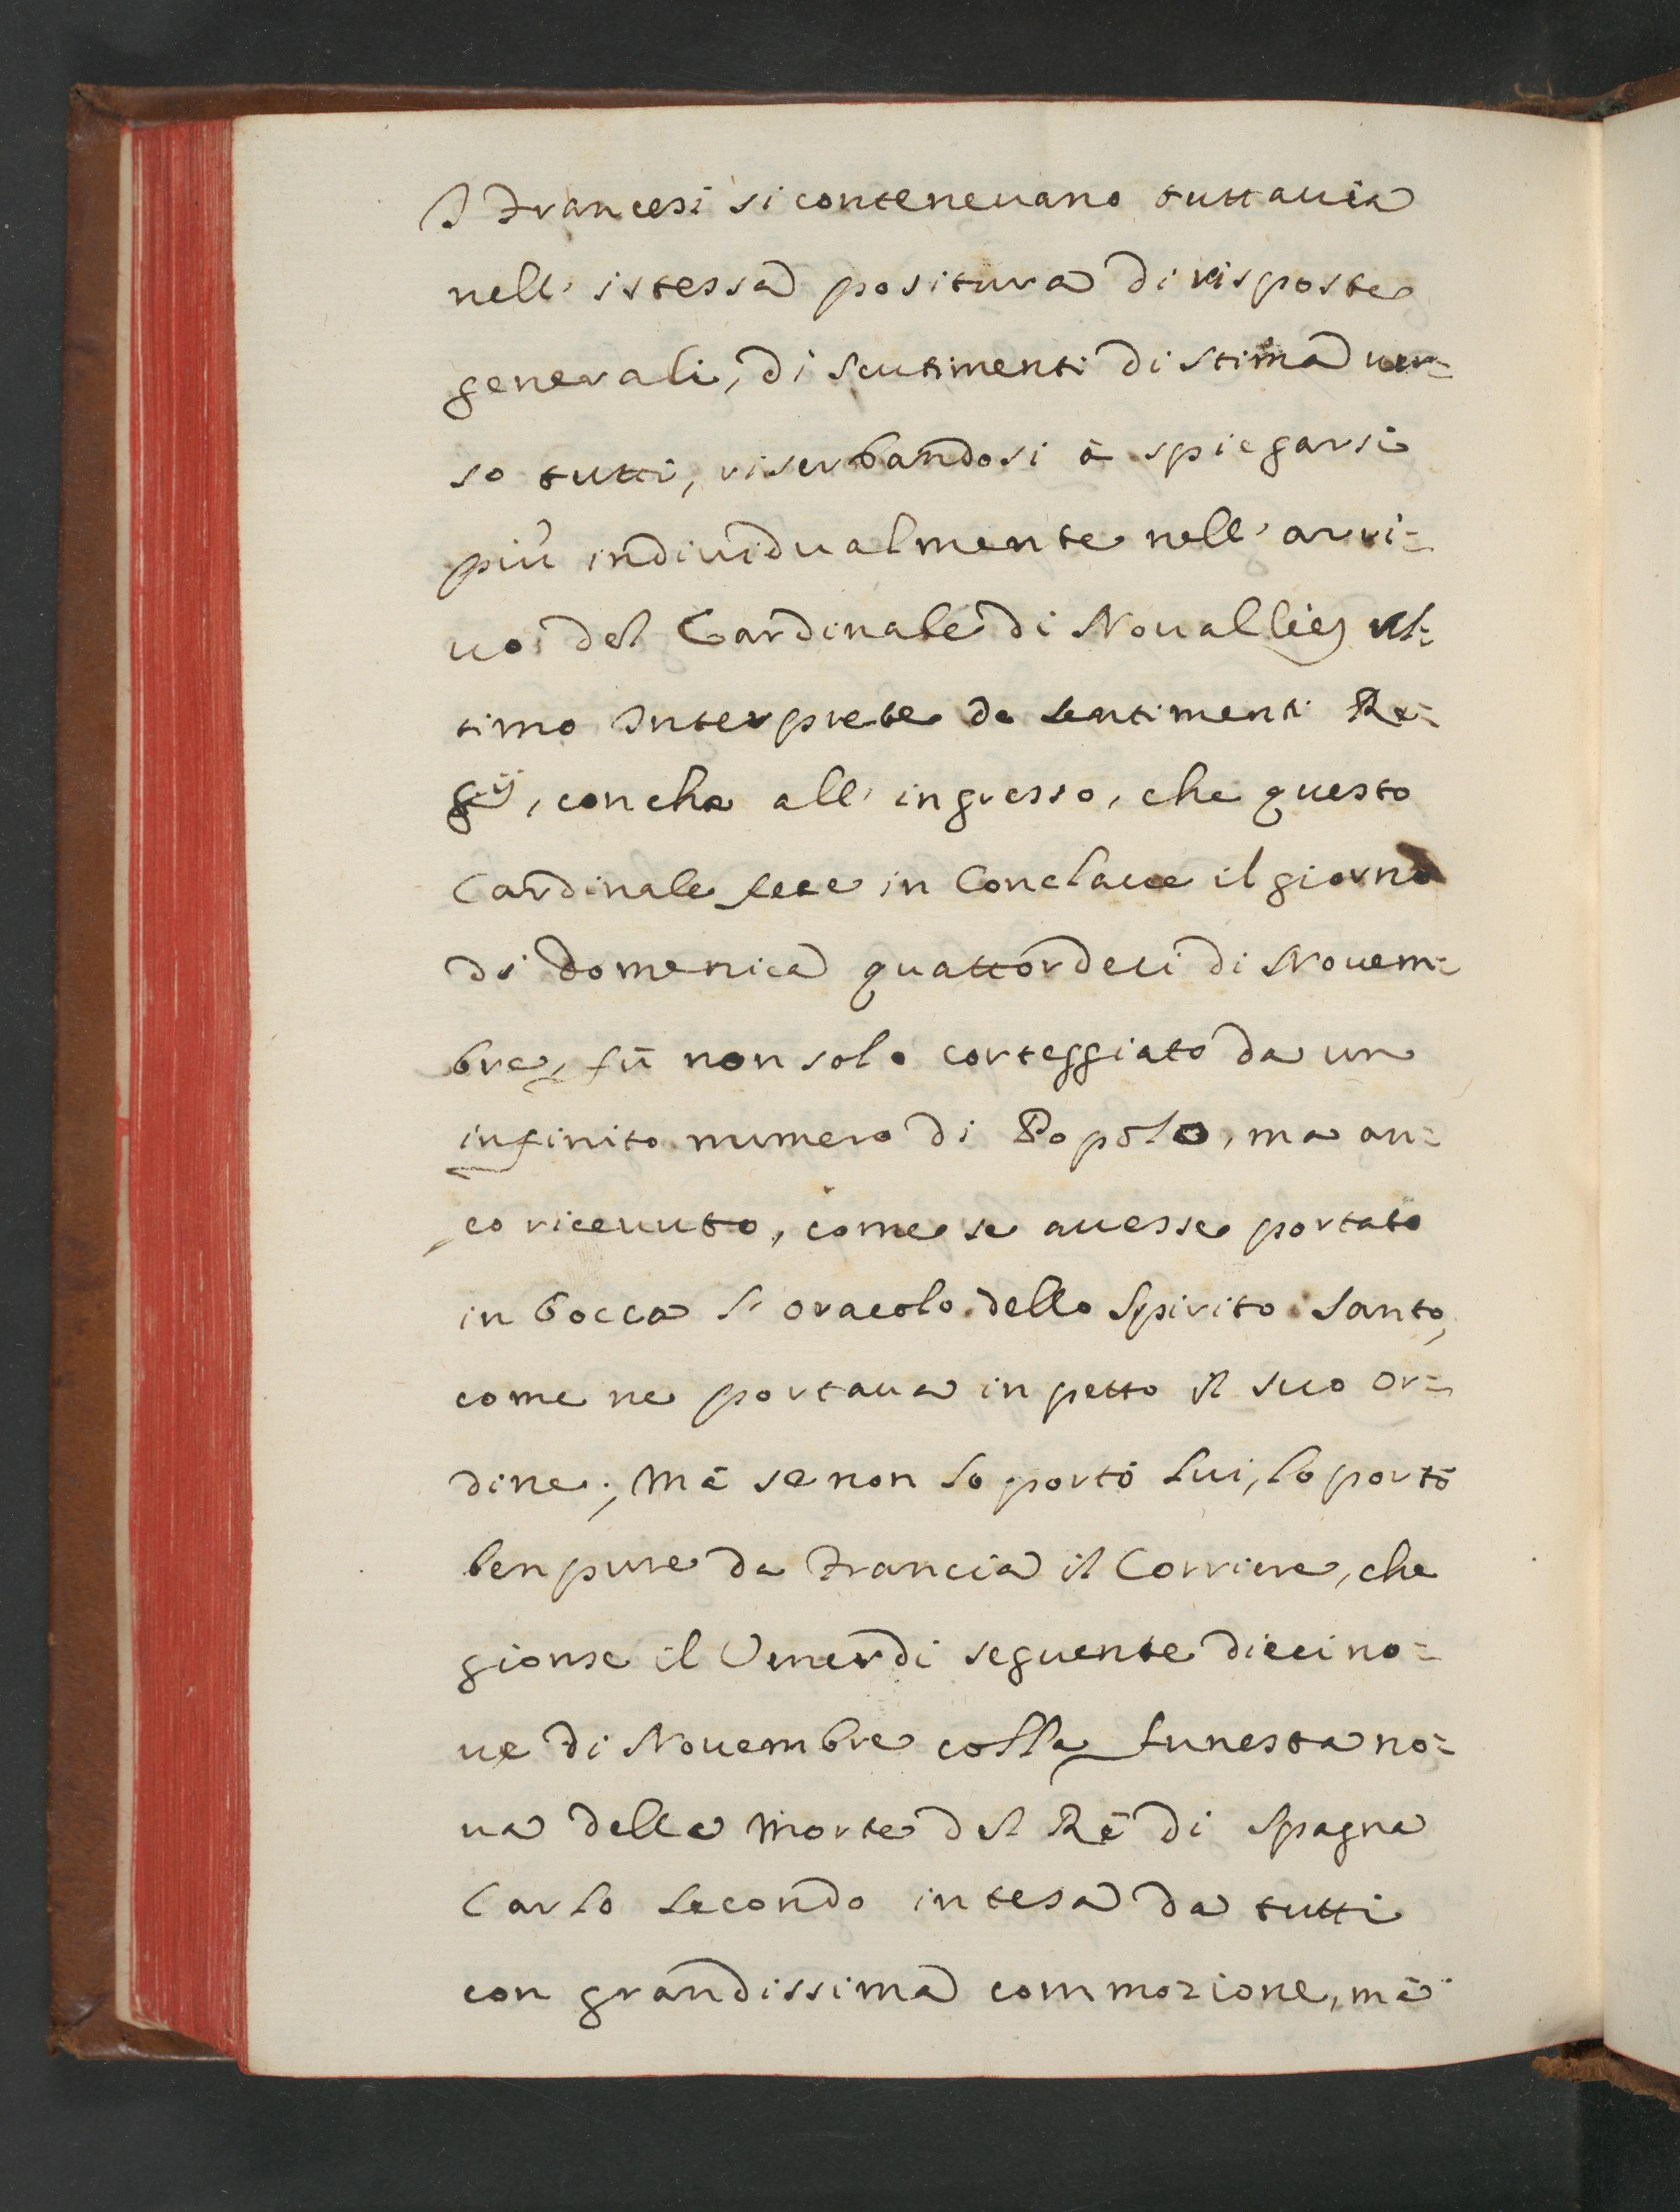 I Francesi si conteneuano tuttauia
nell' istessa positura di risposte
generali, di sentimenti di stima uer=
so tutti, riserbandosi à spiegarsi
più indiuidualmente nell' arri=
uo del Cardinale di Nouallies ul=
timo Interprete de sentimenti Re=
gij, conche all' ingresso, che questo
Cardinale fece in Conclaue il giorno
di Domenica quattordeci di Nouem=
bre, fù non solo corteggiato da un
infinito numero di Popolo, ma an=
co riceuuto, come se auesse portato
in bocca l' oracolo dello Spirito Santo,
come ne portaua in petto il suo or=
dine; Mà se non lo portò lui, lo portò
ben pure da Francia il Corriere, che
gionse il Venerdi seguente dieci no=
ue di Nouembre colla funesta no=
ua della Morte del Rè di Spagna
Carlo Secondo intesa da tutti
con grandissima commozione, mà